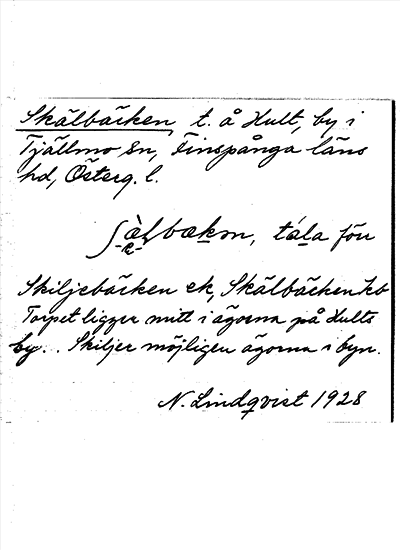 Skälbäcken, t. å Hult, by i
Tjällmo sn, Finspånga läns
hd, Österg. l.
ʃæ̀lbækɴ, tála för
Skiljebäcken ek, Skälbäcken kb
Torpet ligger mitt i ägorna på Hults
by.. Skiljer möjligen ägorna i byn.
N. Lindqvist 1928